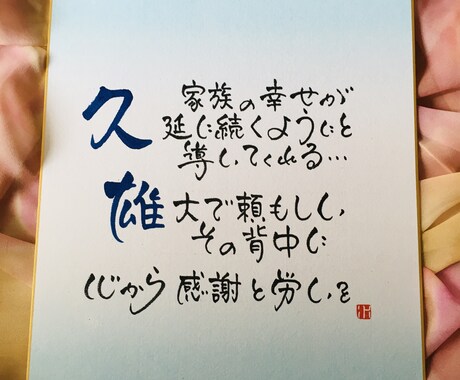 家族の幸せが
久延に続くようにと
導いてくれる…
雄大で頼もしい
その背中に
心から感謝と労いを